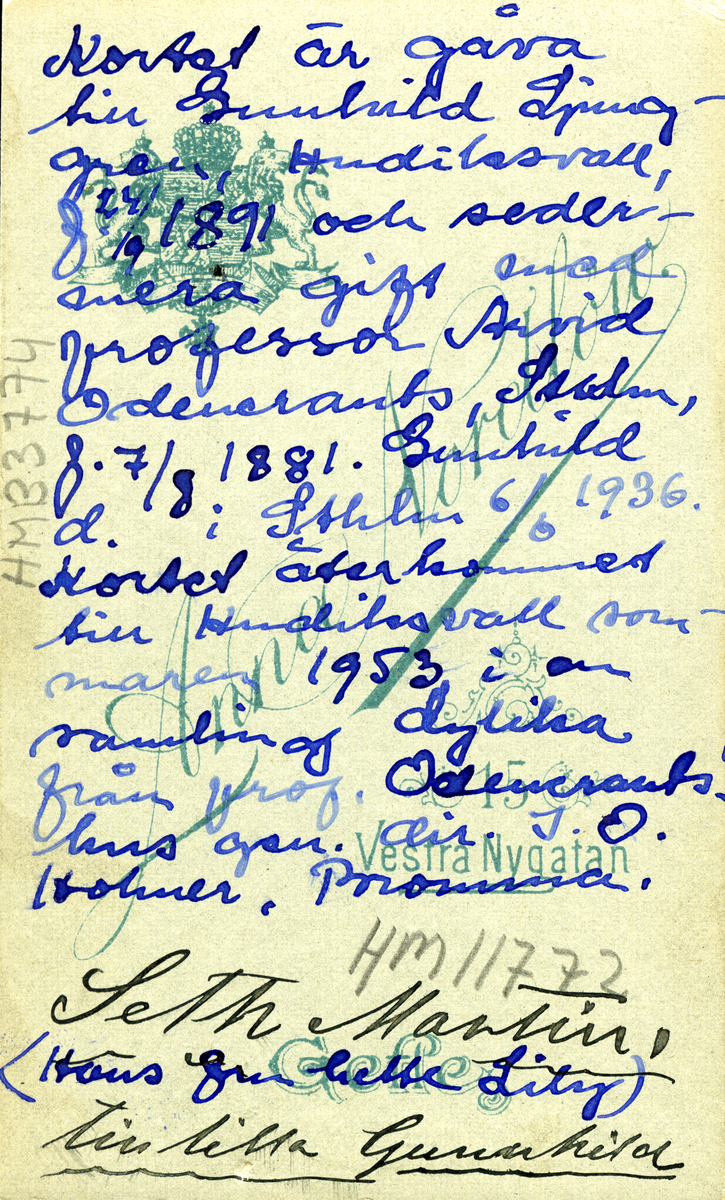 Kortet är gåva
till Gunhild Ljung-
gren, Hudiksvall,
f. 24/9 1891 och seder-
mera gift med
professor Arvid
Odencrants, Sthlm,
f. 7/8 1881. Gunhild
d. i Sthlm 6/6 1936.
Kortet återkommet
till Hudiksvall som-
maren 1953 i en
samling dylika
från prof. Odencrants
hus gen. dir. J. O.
Holmer, Bromma.
HMB3774
HM11772
Anna Norellius
15
Vestra Nygatan
Gefle
Seth Martin,
(Hans fru hette Lily)
till lilla Gunnhild